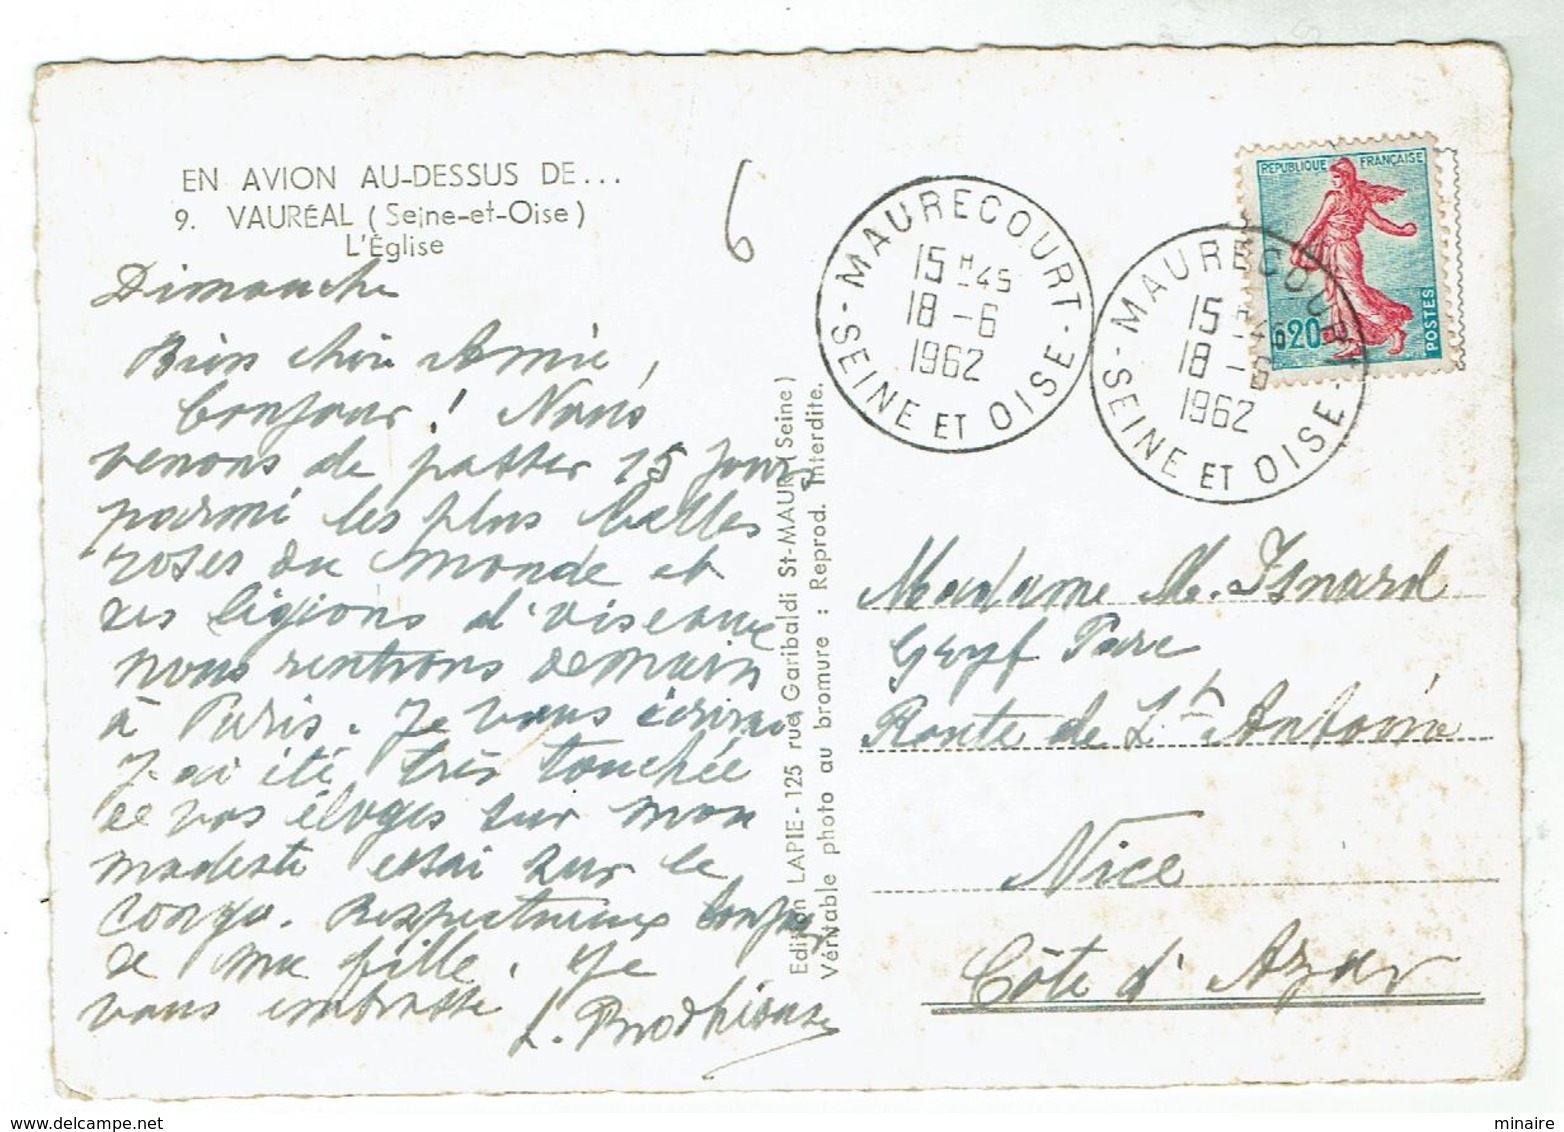 EN AVION AU-DESSUS DE...
9. VAURÉAL (Seine-et-Oise)
L'Église
Dimanche
Bien chère Amie,
bonjour! Nous
venons de passer 15 jours
parmi les plus belles
roses du monde et
des légions d'oiseaux
nous rentrons demain
à Paris. Je vous écrirai
J'ai été très touchée
de vos éloges sur mon
modeste essai sur le
Congo. Respectueux
de ma fille. Je
vous embrasse
L.
6
Edition LAPIE - 125 rue Garibaldi St-MAUR (Seine)
Véritable photo au bromure : Reprod. Interdite.
MAURECOURT
15 H 45
18 - 6
1962
- SEINE ET OISE -
MAURECOURT
15 H 45
18 - 6
1962
- SEINE ET OISE -
REPUBLIQUE FRANÇAISE
0,20
POSTES
Madame M. Isnard
Parc
Route de St Antoine
Nice
Côte d'Azur
delcampe.net
minaire